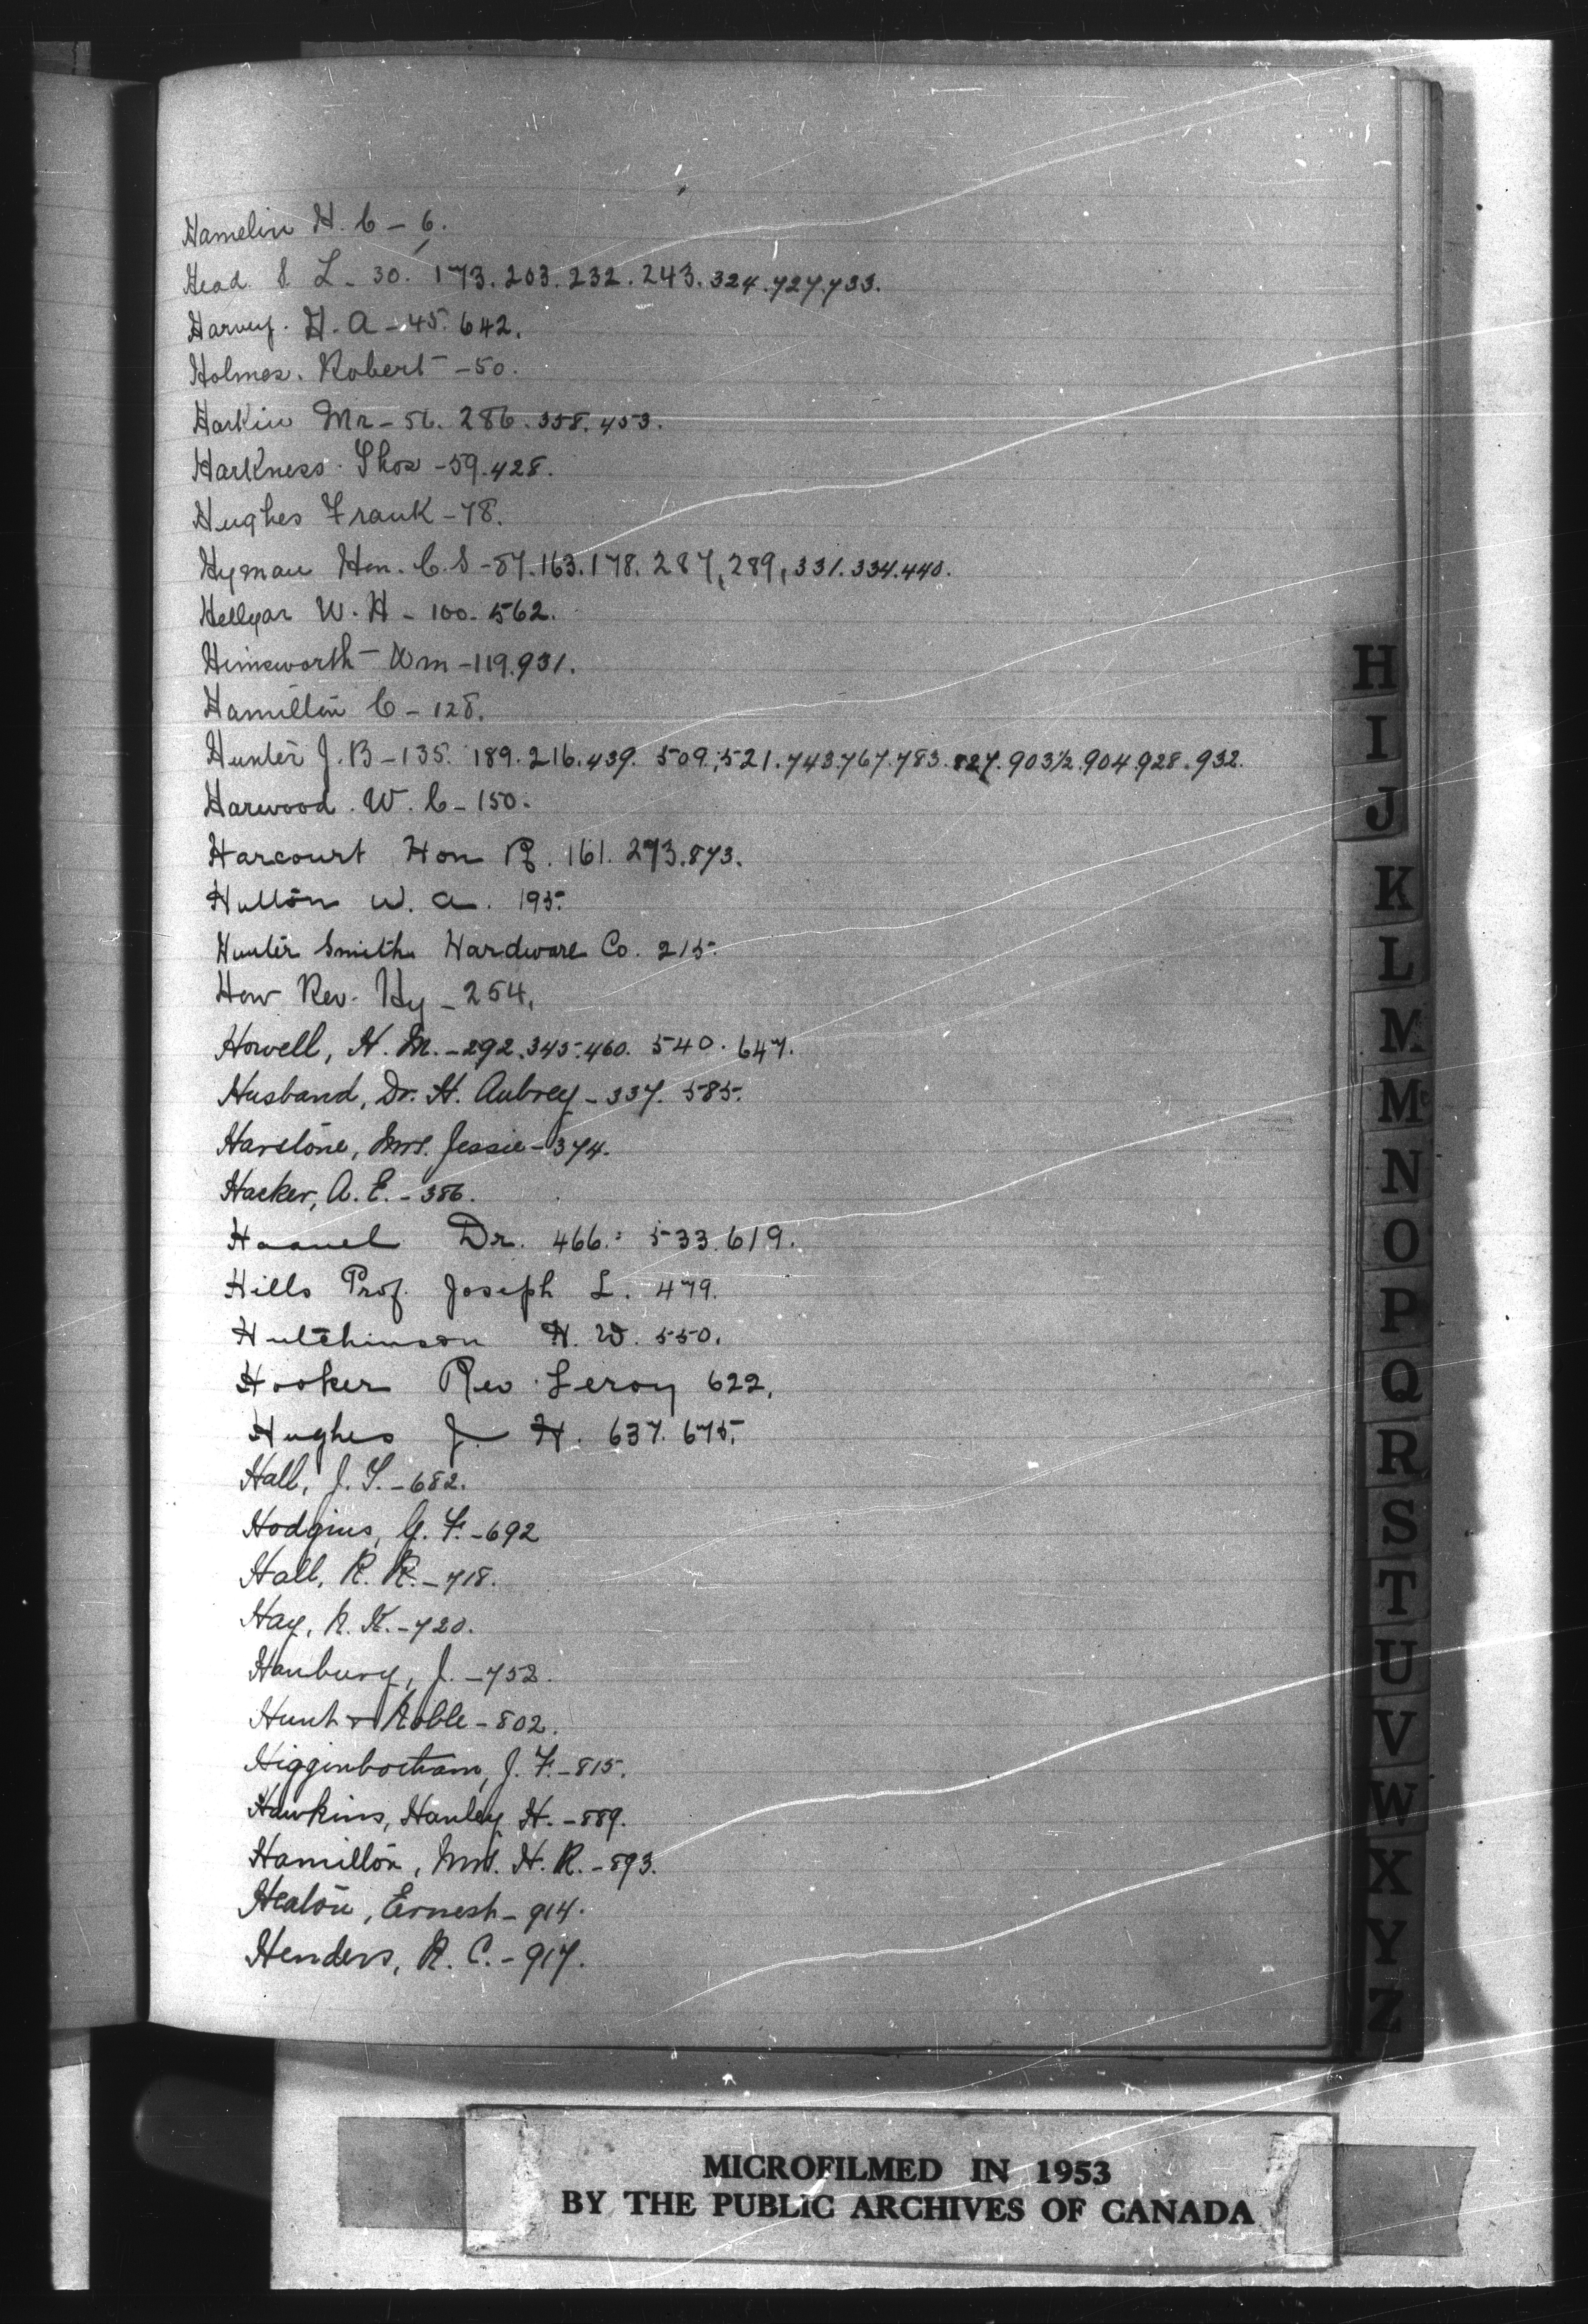 Hamelin H. C - 6.
Head S L - 30. 173. 203. 232. 243. 324. 727. 733.
Harvey. H. A - 45. 642.
Holmes. Robert - 50.
Harkin Mr - 56. 286. 358. 453.
Harkness. Thos - 59. 428.
Hughes Frank - 78.
Hyman Hon. C. S - 87. 163. 178. 287, 289, 331. 334. 440.
Hellyar W. H - 100. 562.
Himsworth Wm - 119. 931.
Hamilton C - 128.
Hunter J. B - 135. 189. 216. 439. 509. 521. 743. 767. 783. 827. 903½. 904. 928. 932.
Harwood. W. C - 150.
Harcourt Hon R. 161. 273. 873.
Hutton W. A. 195.
Hunter Smith Hardware Co. 215.
How Rev. Hy - 254.
Howell, H. M. - 292. 345. 460. 540. 647.
Husband, Dr. H. Aubrey - 337. 585.
Harstone, Mrs. Jessie - 374.
Hacker, A. E. - 386.
Haanel Dr. 466. 533. 619.
Hills Prof. Joseph L. 479.
Hutchinson H. W. 550.
Hooker Rev. Leroy 622.
Hughes J. H. 637. 675.
Hall, J. T. - 682.
Hodgins, G. F. - 692
Hall, R. R. - 718.
Hay, R. K. - 720.
Hanbury, J. - 752.
Hunt & Noble - 802.
Higginbotham, J. F. - 815.
Hawkins, Hanley H. - 889.
Hamilton, Mrs. H. R. - 893.
Heaton, Ernest - 914.
Henders, R. C. - 917.
H
I
J
K
L
M
Mc
N
O
P
Q
R
S
T
U
V
W
X
Y
Z
MICROFILMED IN 1953
BY THE PUBLIC ARCHIVES OF CANADA